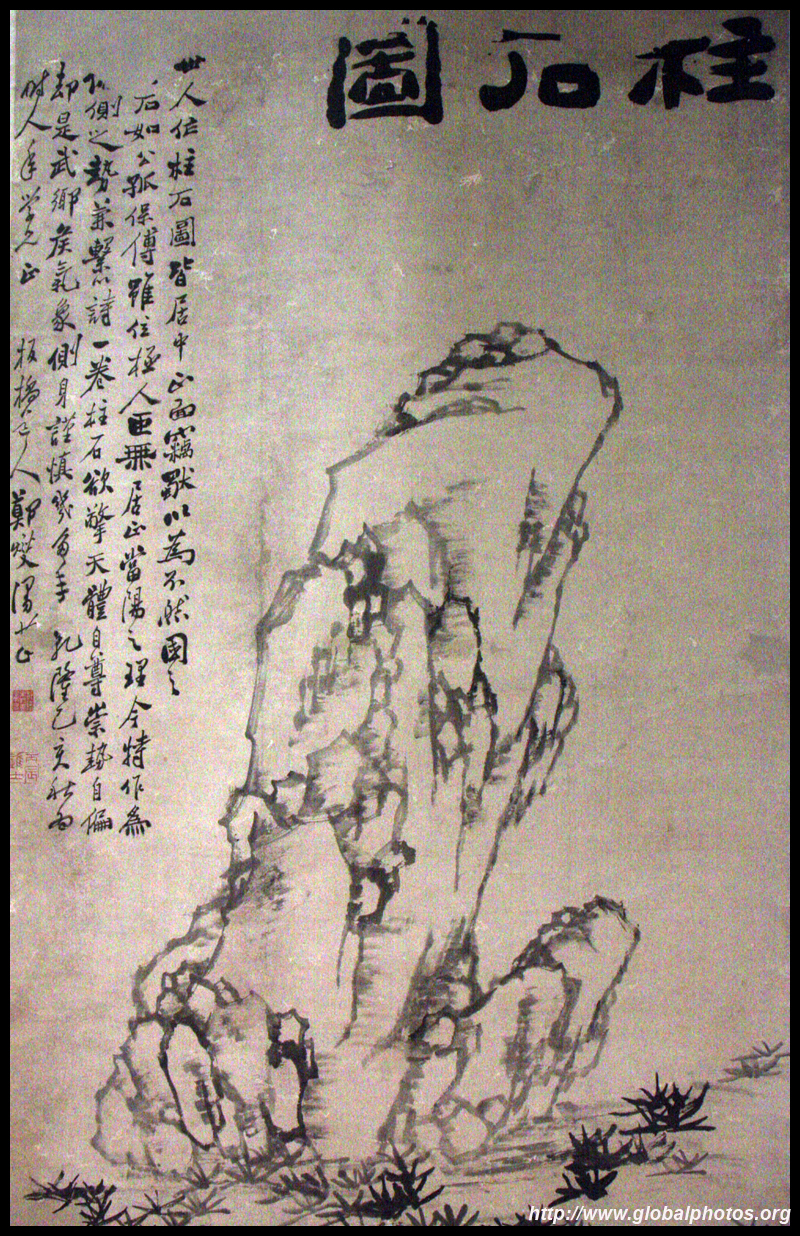 柱石圖
世人作柱石圖皆居中正面竊以為不然國之
石如公孤保傅雖位極人臣無居正當陽之理今特作為
側之勢兼繫以詩一卷柱石欲擎天體自尊崇勢自偏
却是武鄉侯氣象側身謹慎幾多年 乾隆乙亥秋為
人年學兄正 板橋道人鄭燮
http://www.globalphotos.org